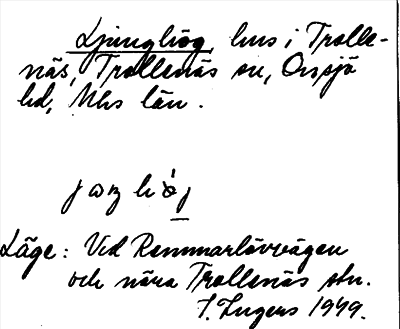 Ljunghög, hus i Trolle-
näs, Trollenäs sn, Onsjö
hd, Mhs län.
Läge: Vid Remmarlövsvägen
och nära Trollenäs stn.
I. Ingers 1949.